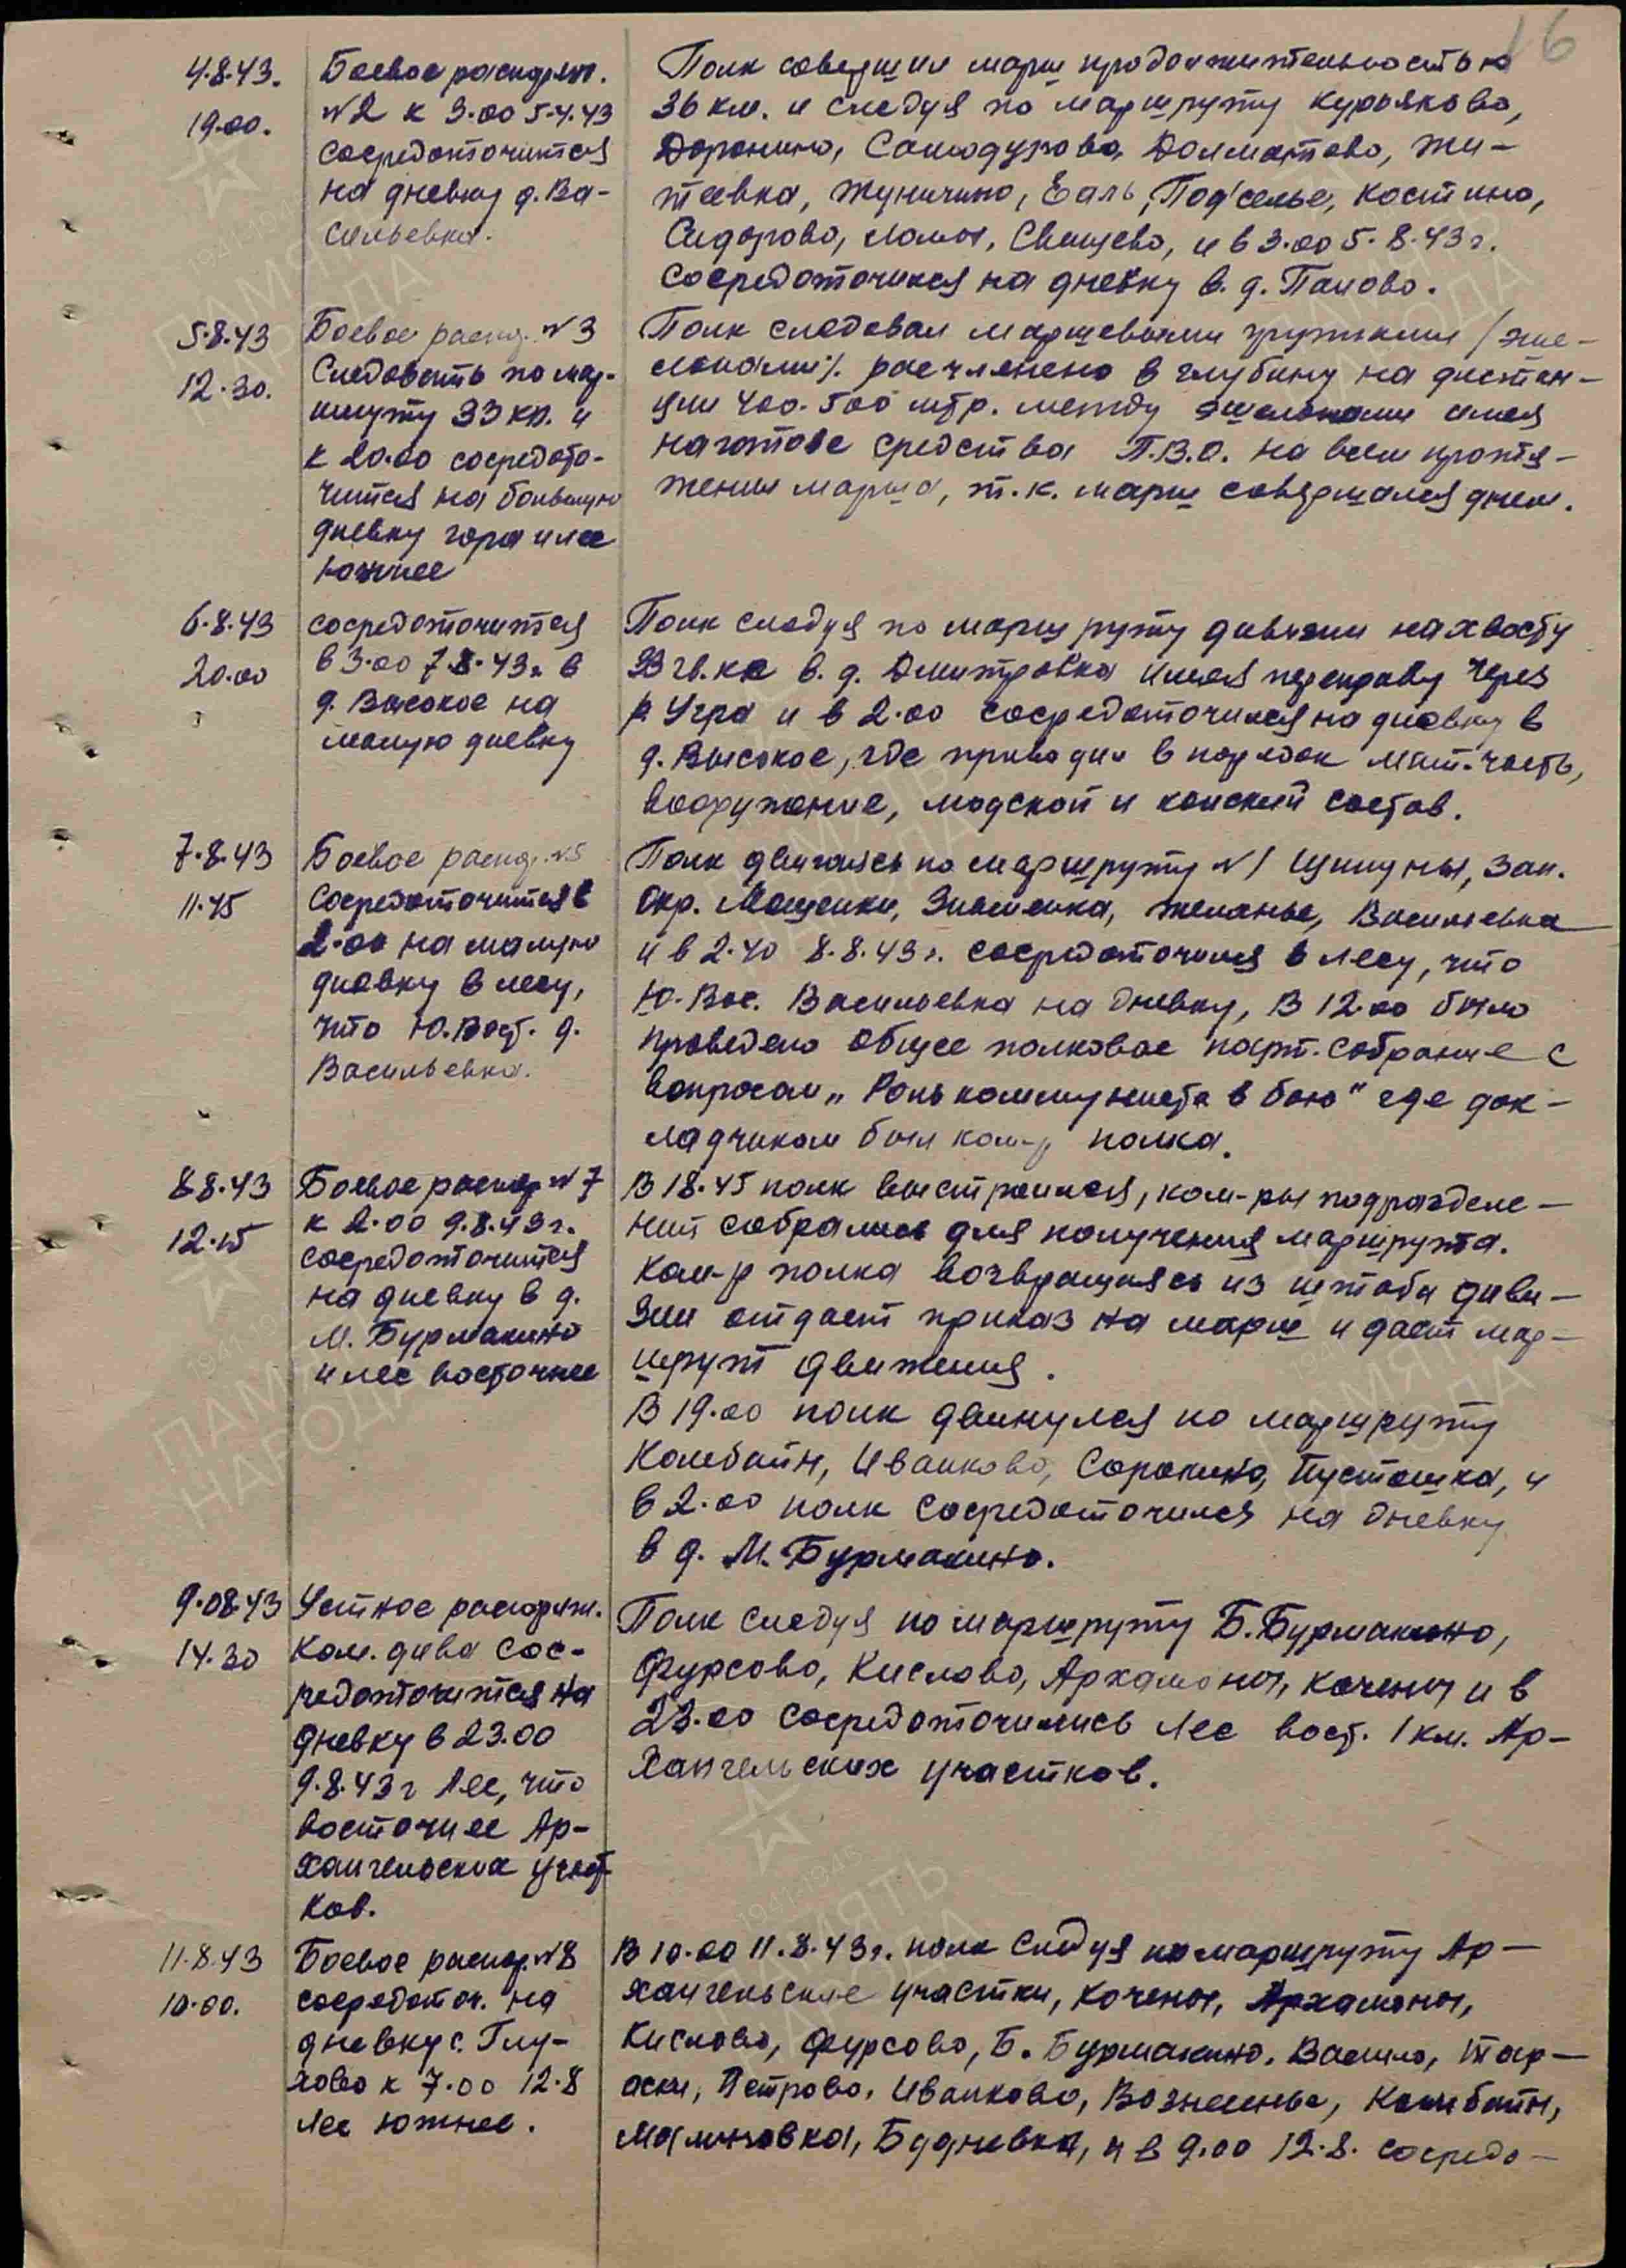 16
4.8.43.
19.00.
Боевое распоряж.
№2 к 3.00 5.4.43
сосредоточится
на дневку д. Ва-
сильевка.
Полк совершил марш продолжительностью
36 км. и следуя по маршруту Курьяково,
Доронино, Самодурово, Долматово,
Жуничино, Под'селье, Костино,
Сидорово, Свищево, и в 3.00 5.8.43 г.
Сосредоточился на дневку в. д. Паново.
5.8.43
12.30.
Боевое распор. №3
Следовать по мар-
шруту 33 км. и
к 20.00 сосредото-
чится на большую
дневку
южнее
Полк следовал маршевыми группами /эше-
лонами/. расчленено в глубину на дистан-
ции 400-500 мтр. между эшелонами имея
наготове средства П.В.О. на всем протя-
жении марша, т.к. марш совершался днем.
6.8.43
20.00
сосредоточится
в 3.00 7.8.43г. в
д. Высокое на
малую дневку
Полк следуя по маршруту
в. д. Дмитровка имея переправу через
р. Угра и в 2.00 сосредоточился на дневку в
д. Высокое, где приводил в порядок мат.часть,
вооружение, людской и конский состав.
7.8.43
11.45
Боевое распор. №5
Сосредоточится в
2.00 на малую
дневку в лесу,
что Ю.Вост. д.
Васильевка.
Полк двигаясь по маршруту №1 Зап.
Окр. Знаменка, Желанье, Васильевка
и в 2.40 8.8.43г. сосредоточился в лесу, что
Ю.-Вос. Васильевка на дневку, В 12.00 было
проведено общее полковое парт.собрание с
вопросом „Роль коммуниста в бою" где док-
ладчиком был ком-р полка.
8.8.43
12.15
Боевое распор №7
к 2.00 9.8.43г.
сосредоточится
на дневку в д.
М. Бурмакино
и лес восточнее
В 18.45 полк выстроился, ком-ры подразделе-
ний собрались для получения маршрута.
Ком-р полка возвращаясь из штаба диви-
зии отдает приказ на марш и дает мар-
шрут движения.
В 19.00 полк двинулся по маршруту
Комбайн, Иванково, Сорокино, Пустошка, и
в 2.00 полк сосредоточился на дневку
в д. М. Бурмакино.
9.08.43
14.30
Устное распоряж.
Ком. дива сос-
редоточится на
дневку в 23.00
9.8.43г Лес, что
восточнее Ар-
хангельских участ-
ков.
Полк следуя по маршруту Б.Бурмакино,
Фурсово, Кислово, Архамоны, Кочены и в
23.00 сосредоточились Лес вост. 1 км. Ар-
хангельских участков.
11.8.43
10.00.
Боевое распор. №8
сосредоточ. на
дневку с. Глу-
хово к 7.00 12.8
Лес южнее.
В 10.00 11.8.43г. полк следуя по маршруту Ар-
хангельские участки, Кочены, Архамоны,
Кислово, Фурсово, Б. Бурмакино, Тар-
асы, Петрово, Иванково, Вознесенье, Комбайн,
Малиновка, и в 9.00 12.8. сосредо-